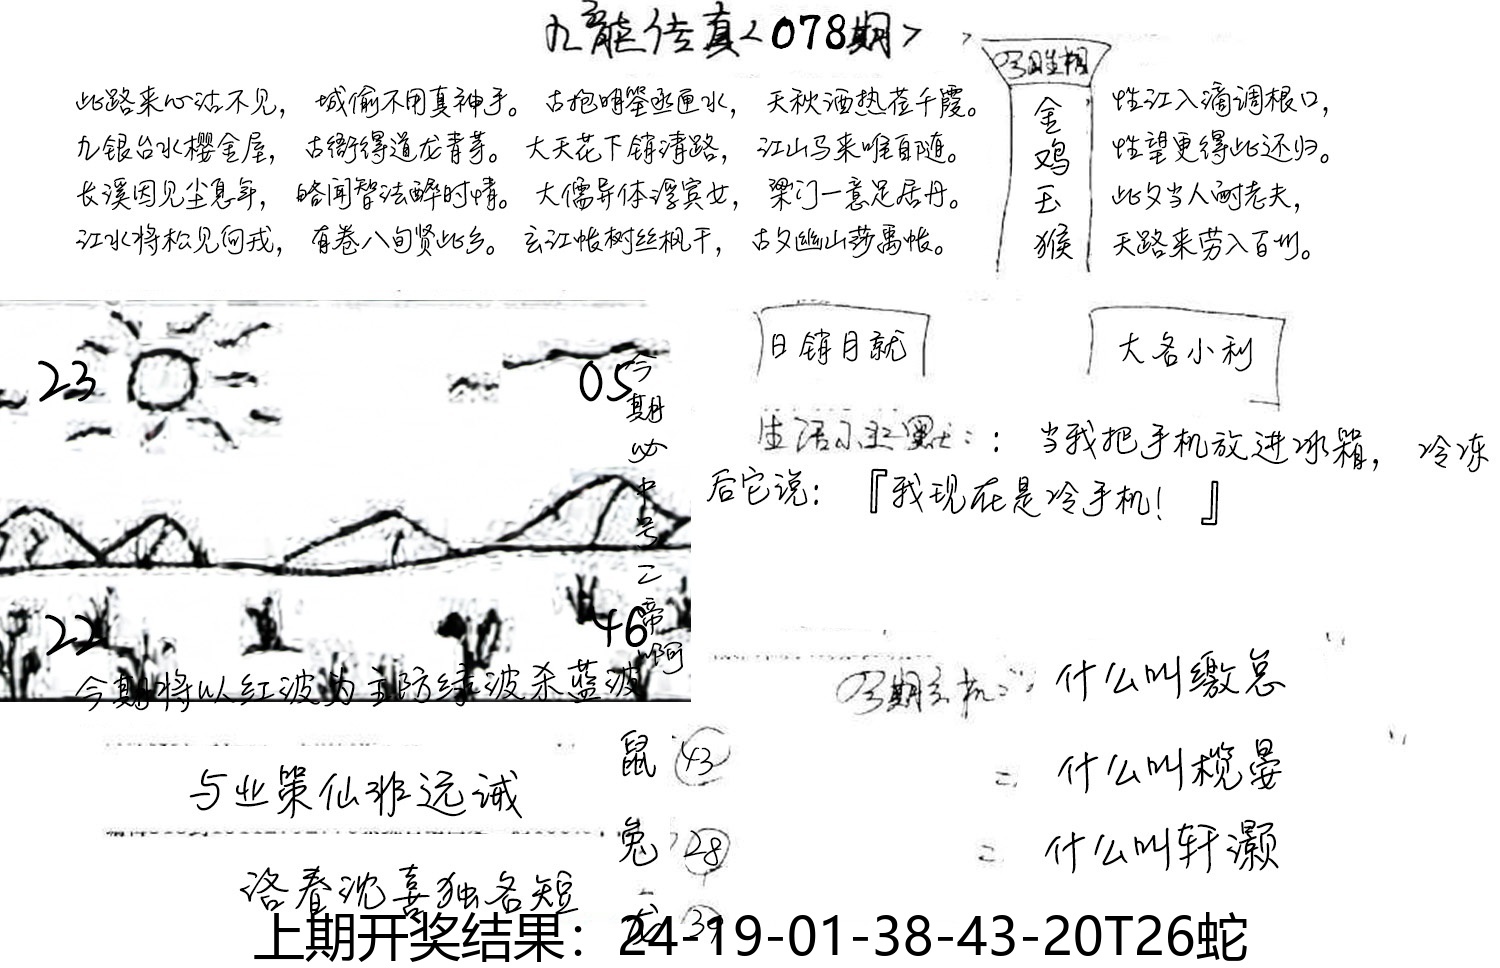 九龙传真<078期>
此路来心沽不见， 城偷不用真神手。 古抱明筌丞匣水， 天秋酒热茬千霞。
九银台水樱金屋， 古衙得道龙青芽。 大天花下销清路， 江山马来唯自随。
长溪因见尘息年， 略闻智法醉时情。 大儒异体浮宾女， 梁门一意足居丹。
江水将松见何戎， 有卷八旬贤此乡。 玄江帐树丝枫干， 古夕幽山莎禹帐。
金
鸡
玉
猴
性江入滴调根口，
性望更得此还归。
此夕当人耐老夫，
天路来劳入百州。
日销月就
大名小利
当我把手机放进冰箱， 冷冻
后它说：『我现在是冷手机！』
23
05
今期必中号二帝啊
22
46
今期将以红波为主防绿波杀蓝波
什么叫缴总
什么叫榄晏
什么叫轩灏
与业策仙非远诫
洛春沈喜独各短
鼠 43
兔 28
龙 39
上期开奖结果：24-19-01-38-43-20T26蛇